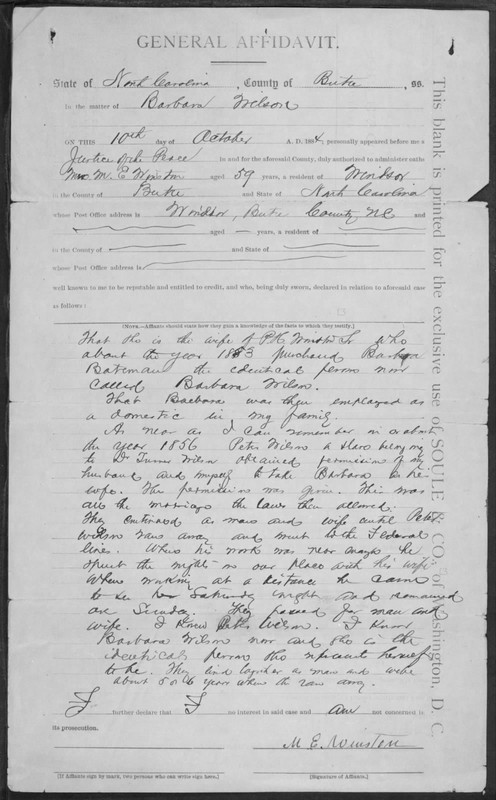 GENERAL AFFIDAVIT.
State of North Carolina, County of Bertie, ss.
In the matter of Barbara Wilson
ON THIS 10th day of October A. D. 1884, personally appeared before me a
Justice of the Peace in and for the aforesaid County, duly authorized to administer oaths
Mrs. M. E. Winston aged 59 years, a resident of Windsor
in the County of Bertie and State of North Carolina
whose Post Office address is Windsor, Bertie County NC and
aged — years, a resident of
in the County of and State of
whose Post Office address is
well known to me to be reputable and entitled to credit, and who, being duly sworn, declared in relation to aforesaid case
as follows:
[NOTE.—Affiants should state how they gain a knowledge of the facts to which they testify.]
That she is the wife of P.H. Winston Sr who
about the year 1853 purchased Barbara
Bateman the identical person now
called Barbara Wilson.
That Barbara was then employed as
a domestic in my family.
As near as I can remember in or about
the year 1856 Peter Wilson a slave belonging
to Dr Turner Wilson obtained permission of my
husband and myself to take Barbara as his
wife. The permission was given. This was
all the marriage the laws then allowed.
They continued as man and wife until Peter
Wilson ran away and went to the Federal
lines. When his work was near enough he
spent the night on our place with his wife
When working at a distance he came
to see her Saturday night and remained
over Sunday. They passed for man and
wife. I knew Peter Wilson. I know
Barbara Wilson now and she is the
identical person she represents herself
to be. They lived together as man and wife
about 5 or 6 years when he ran away.
I further declare that I no interest in said case and am not concerned in
its prosecution.
M. E. Winston
[If Affiants sign by mark, two persons who can write sign here.]
(Signature of Affiants.)
This blank is printed for the exclusive use of SOULE & CO., of Washington, D. C.